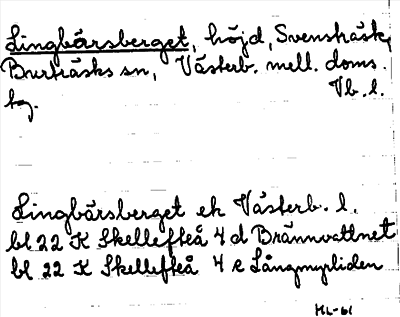 Lingbärsberget, höjd, Svensträsk,
Burträsks sn, Västerb. mell. doms.
tg. Vb. l.
Lingbärsberget ek Västerb. l.
bl 22 K Skellefteå 4 d Brännvattnet
bl 22 K Skellefteå 4 e Långmyrliden
HL-61